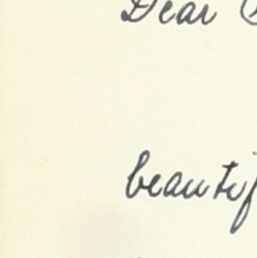 Dear
beautif